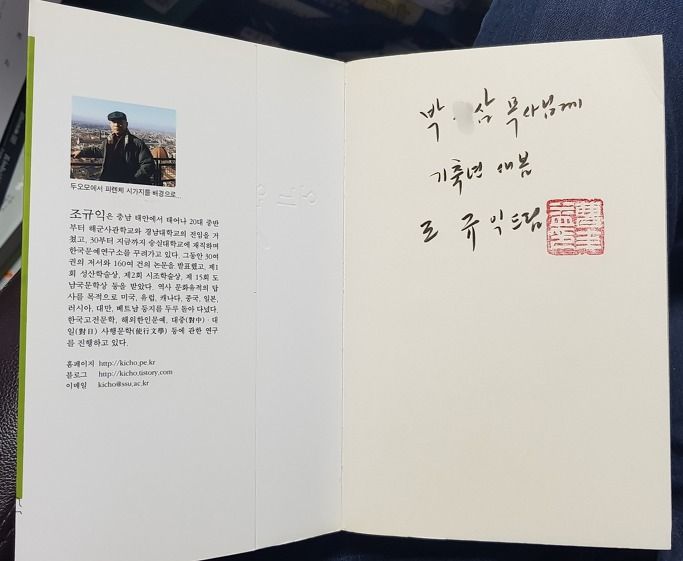 두오모에서 피렌체 시가지를 배경으로...
조규익은 충남 태안에서 태어나 20대 중반
부터 해군사관학교와 경남대학교의 전임을 거
쳤고, 30부터 지금까지 숭실대학교에 재직하며
한국문예연구소를 꾸려가고 있다. 그동안 30여
권의 저서와 160여 건의 논문을 발표했고, 제1
회 성산학술상, 제2회 시조학술상, 제 15회 도
남국문학상 등을 받았다. 역사 문화유적의 답
사를 목적으로 미국, 유럽, 캐나다, 중국, 일본,
러시아, 대만, 베트남 등지를 두루 돌아 다녔다.
한국고전문학, 해외한인문예, 대중(對中)·대
일(對日) 사행문학(使行文學) 등에 관한 연구
를 진행하고 있다.
홈페이지 http://kicho.pe.kr
블로그 http://kicho.tistory.com
이메일 kicho@ssu.ac.kr
박 삼 목사님께
기축년 새봄
조규익드림